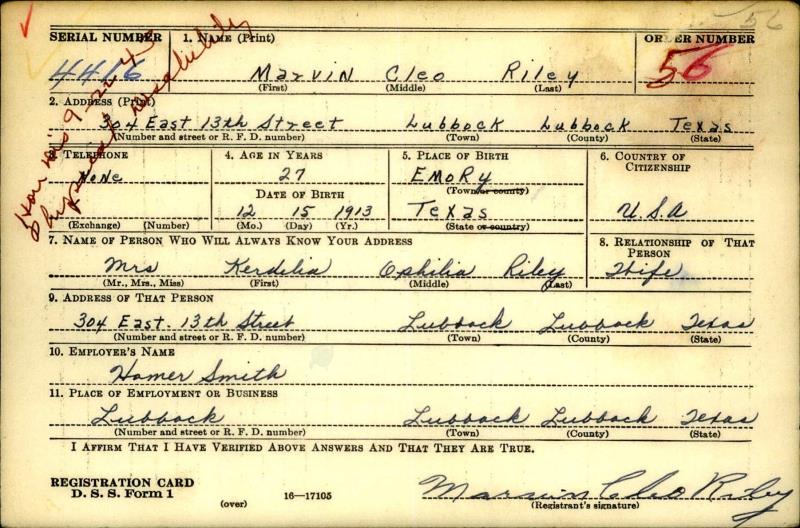 56
SERIAL NUMBER 1. NAME (Print) ORDER NUMBER
4416 Marvin Cleo Riley 56
(First) (Middle) (Last)
2. ADDRESS (Print)
304 East 13th Street Lubbock Lubbock Texas
(Number and street or R. F. D. number) (Town) (County) (State)
3. TELEPHONE 4. AGE IN YEARS 5. PLACE OF BIRTH 6. COUNTRY OF CITIZENSHIP
None 27 EMORY
DATE OF BIRTH (Town or county)
12 15 1913 Texas U.S.A
(Exchange) (Number) (Mo.) (Day) (Yr.) (State or country)
7. NAME OF PERSON WHO WILL ALWAYS KNOW YOUR ADDRESS 8. RELATIONSHIP OF THAT PERSON
Mrs Kerdelia Ophilia Riley Wife
(Mr., Mrs., Miss) (First) (Middle) (Last)
9. ADDRESS OF THAT PERSON
304 East. 13th Street Lubbock Lubbock Texas
(Number and street or R. F. D. number) (Town) (County) (State)
10. EMPLOYER'S NAME
Homer Smith
11. PLACE OF EMPLOYMENT OR BUSINESS
Lubbock Lubbock Lubbock Texas
(Number and street or R. F. D. number) (Town) (County) (State)
I AFFIRM THAT I HAVE VERIFIED ABOVE ANSWERS AND THAT THEY ARE TRUE.
REGISTRATION CARD
D. S. S. Form 1 (over) 16—17105 Marvin Cleo Riley
(Registrant's signature)
physical disability